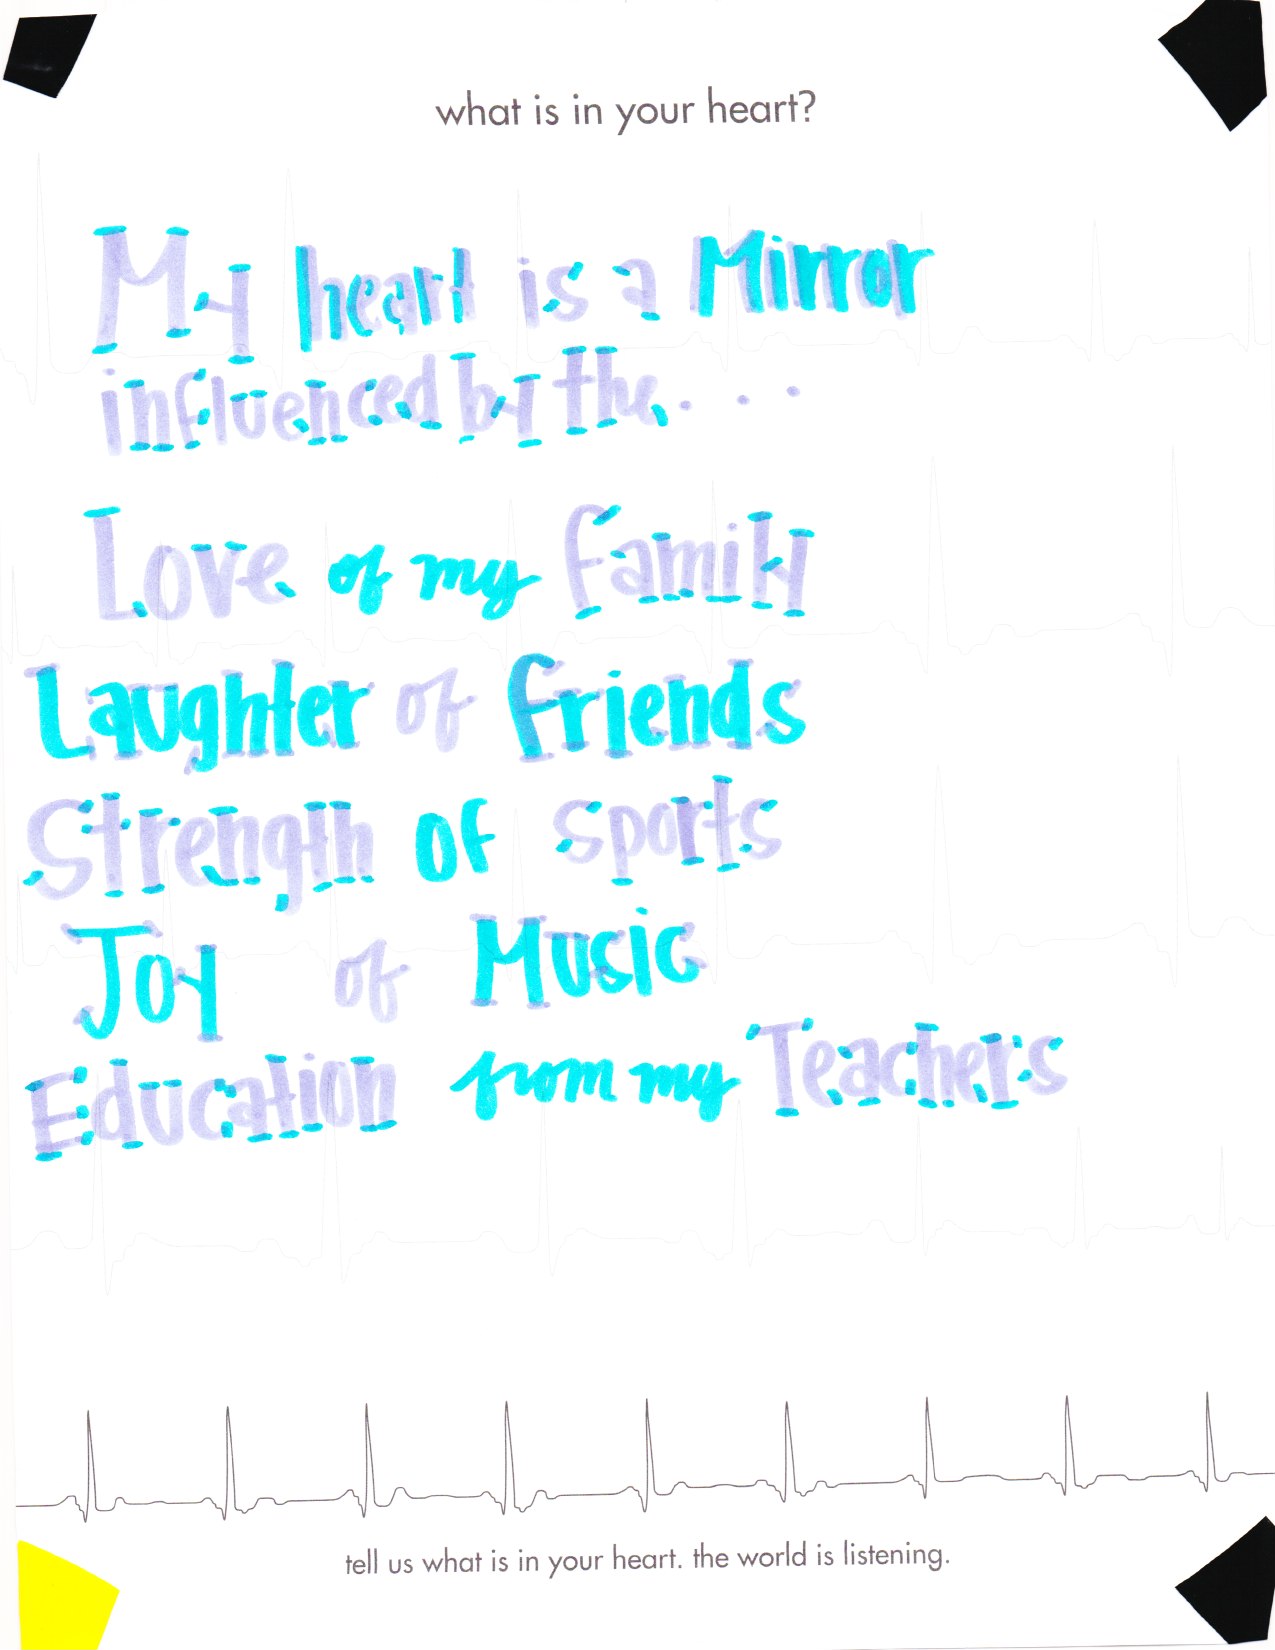 what is in your heart?
My heart is a Mirror
influenced by the. . . .
Love of my Family
Laughter of Friends
Strength of Sports
Joy of Music
Education from my Teachers
tell us what is in your heart. the world is listening.